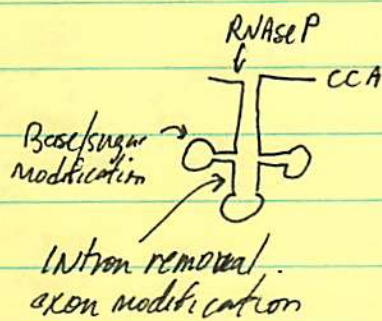 RNAse P
CCA
Base/sugar
modification
Intron removal.
exon modification